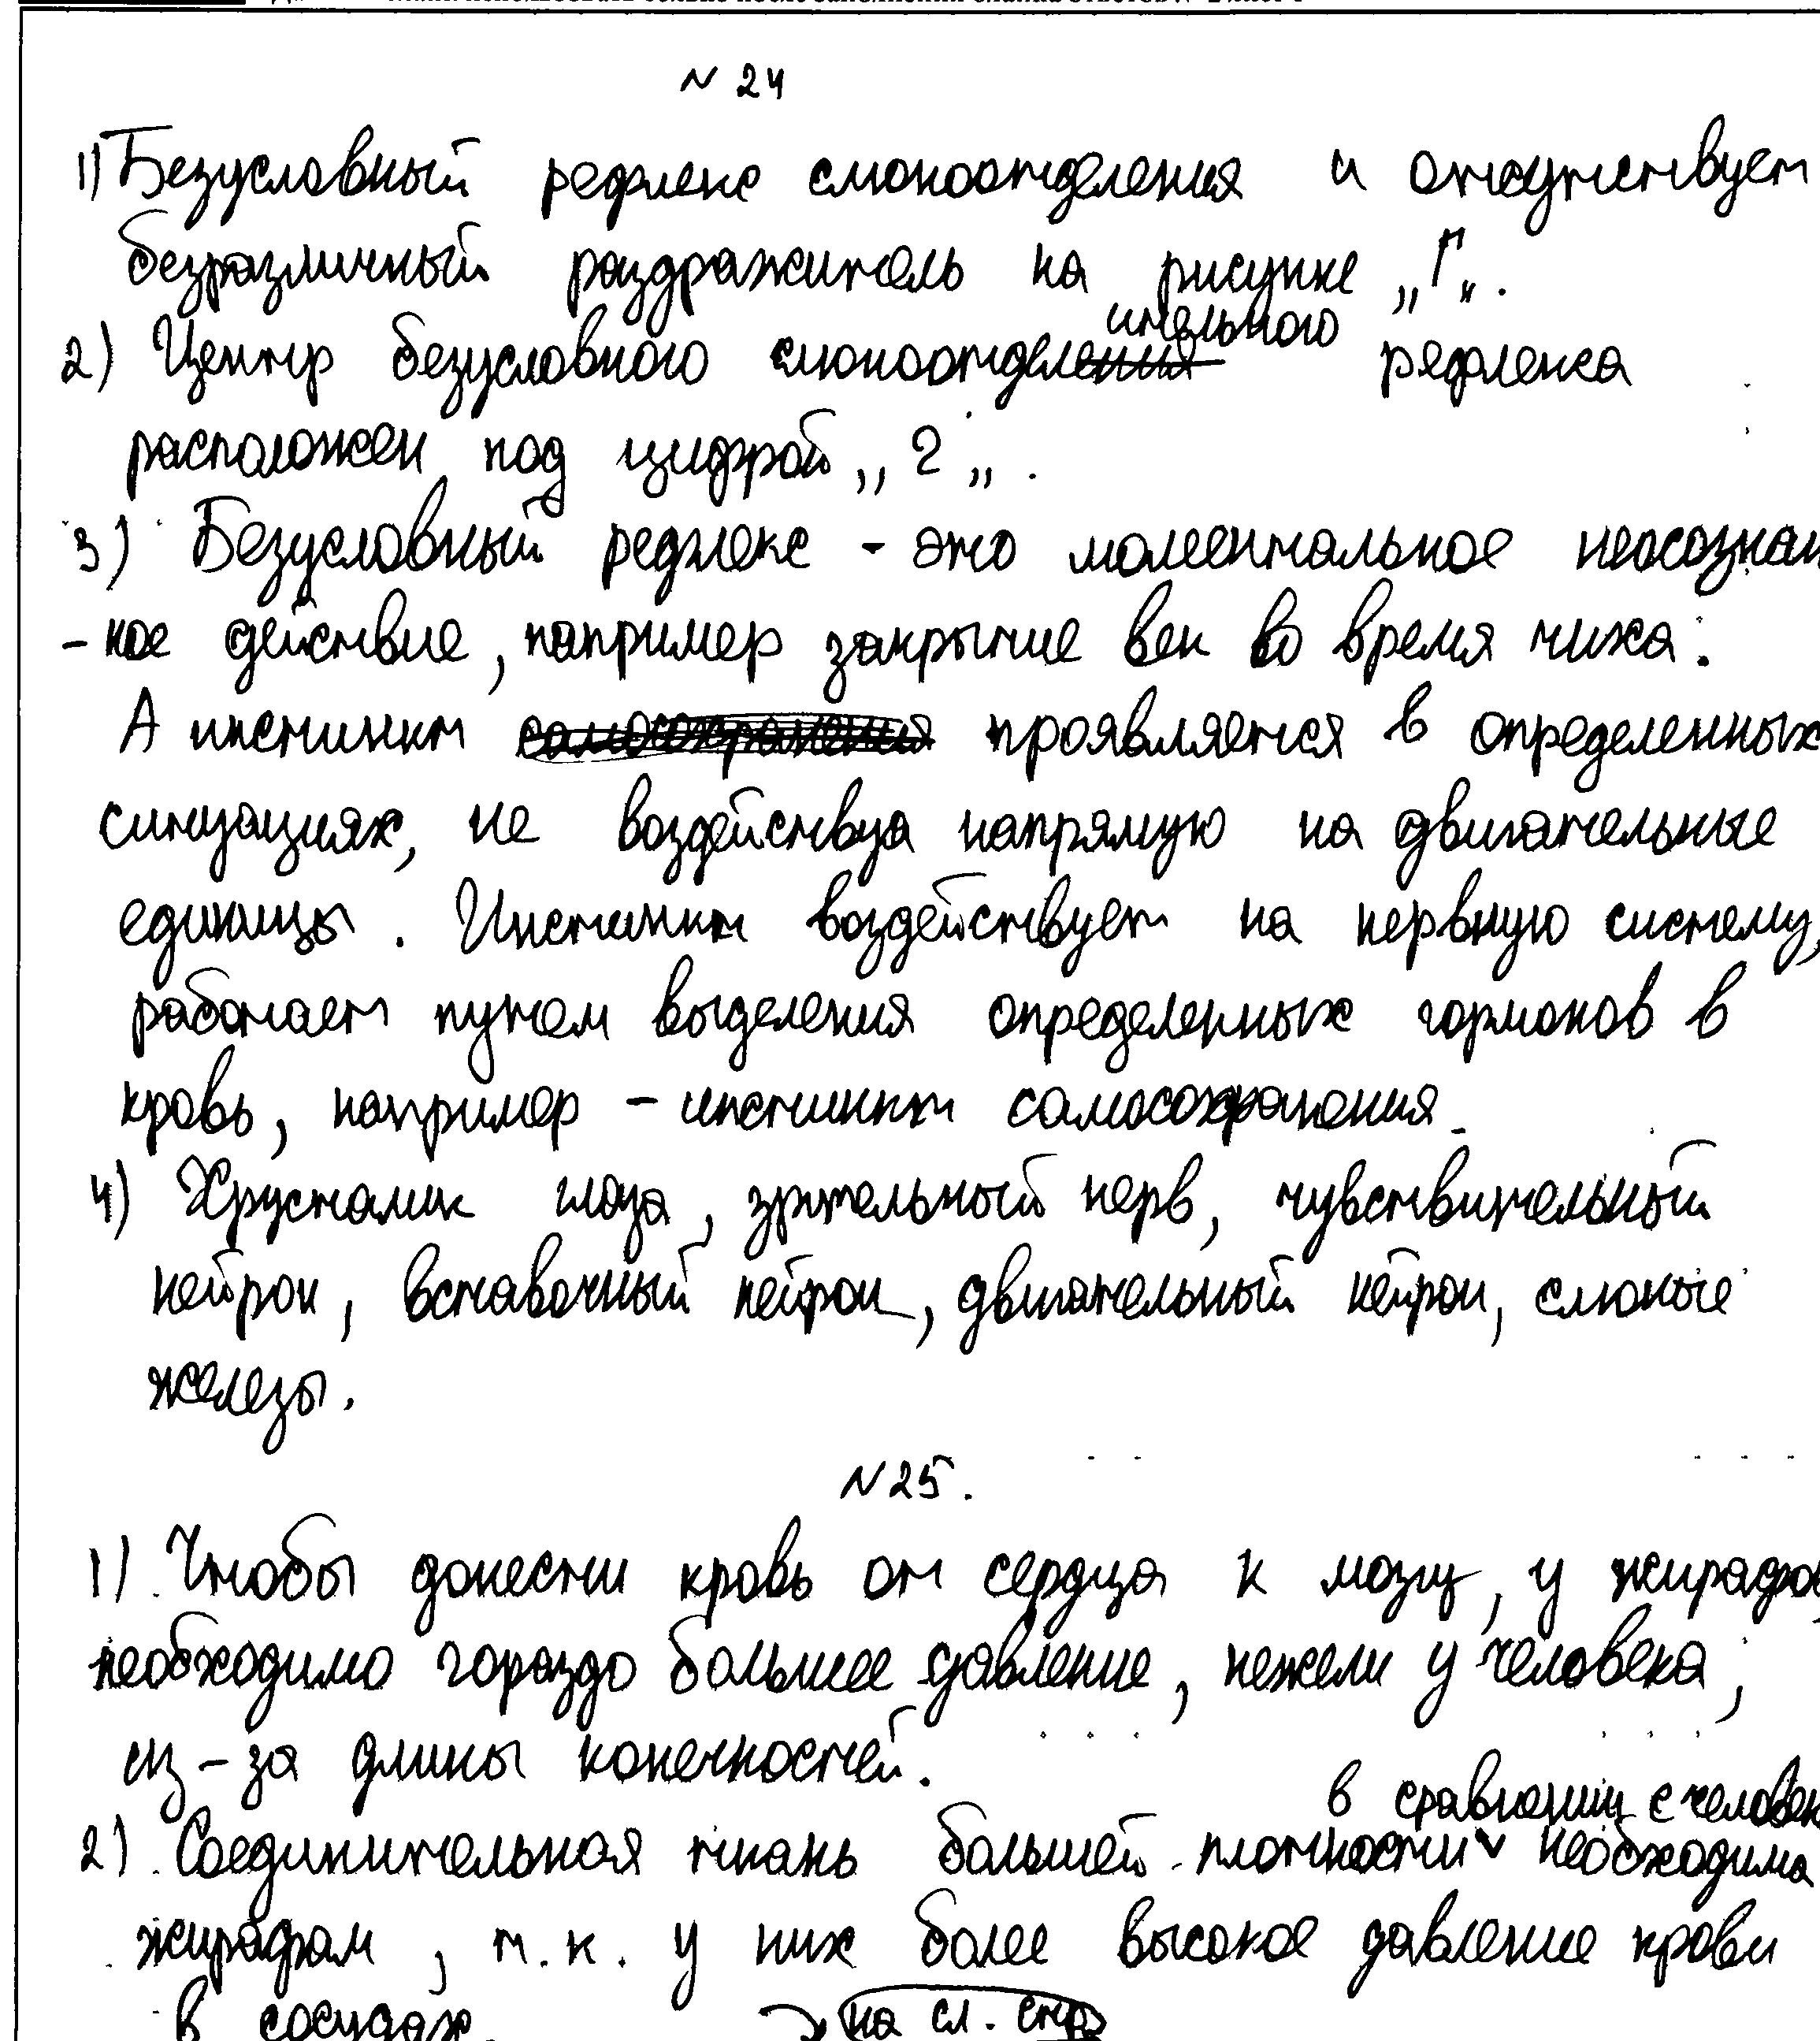 № 24
1) Безусловный рефлекс слюноотделения и отсутствует
безразличный раздражитель на рисунке „Г„.
2) Центр безусловного слюноотделительного рефлекса
расположен под цифрой „2„.
3) Безусловный рефлекс - это моментальное неосознан
-ное действие, например закрытие век во время чиха.
А инстинкт самосохранения проявляется в определенных
ситуациях, не воздействуя напрямую на двигательные
единицы. Инстинкт воздействует на нервную систему,
работает путем выделения определенных гормонов в
кровь, например - инстинкт самосохранения.
4) Хрусталик глаза, зрительный нерв, чувствительный
нейрон, вставочный нейрон, двигательный нейрон, слюные
железы.
№25.
1) Чтобы донести кровь от сердца к мозгу, у жирафов
необходимо гораздо большее давление, нежели у человека,
из-за длины конечностей.
в сравнении с человек
2) Соединительная ткань большей плотности необходима
жирафам, т.к. у них более высокое давление крови
в сосудах.
на сл. стр